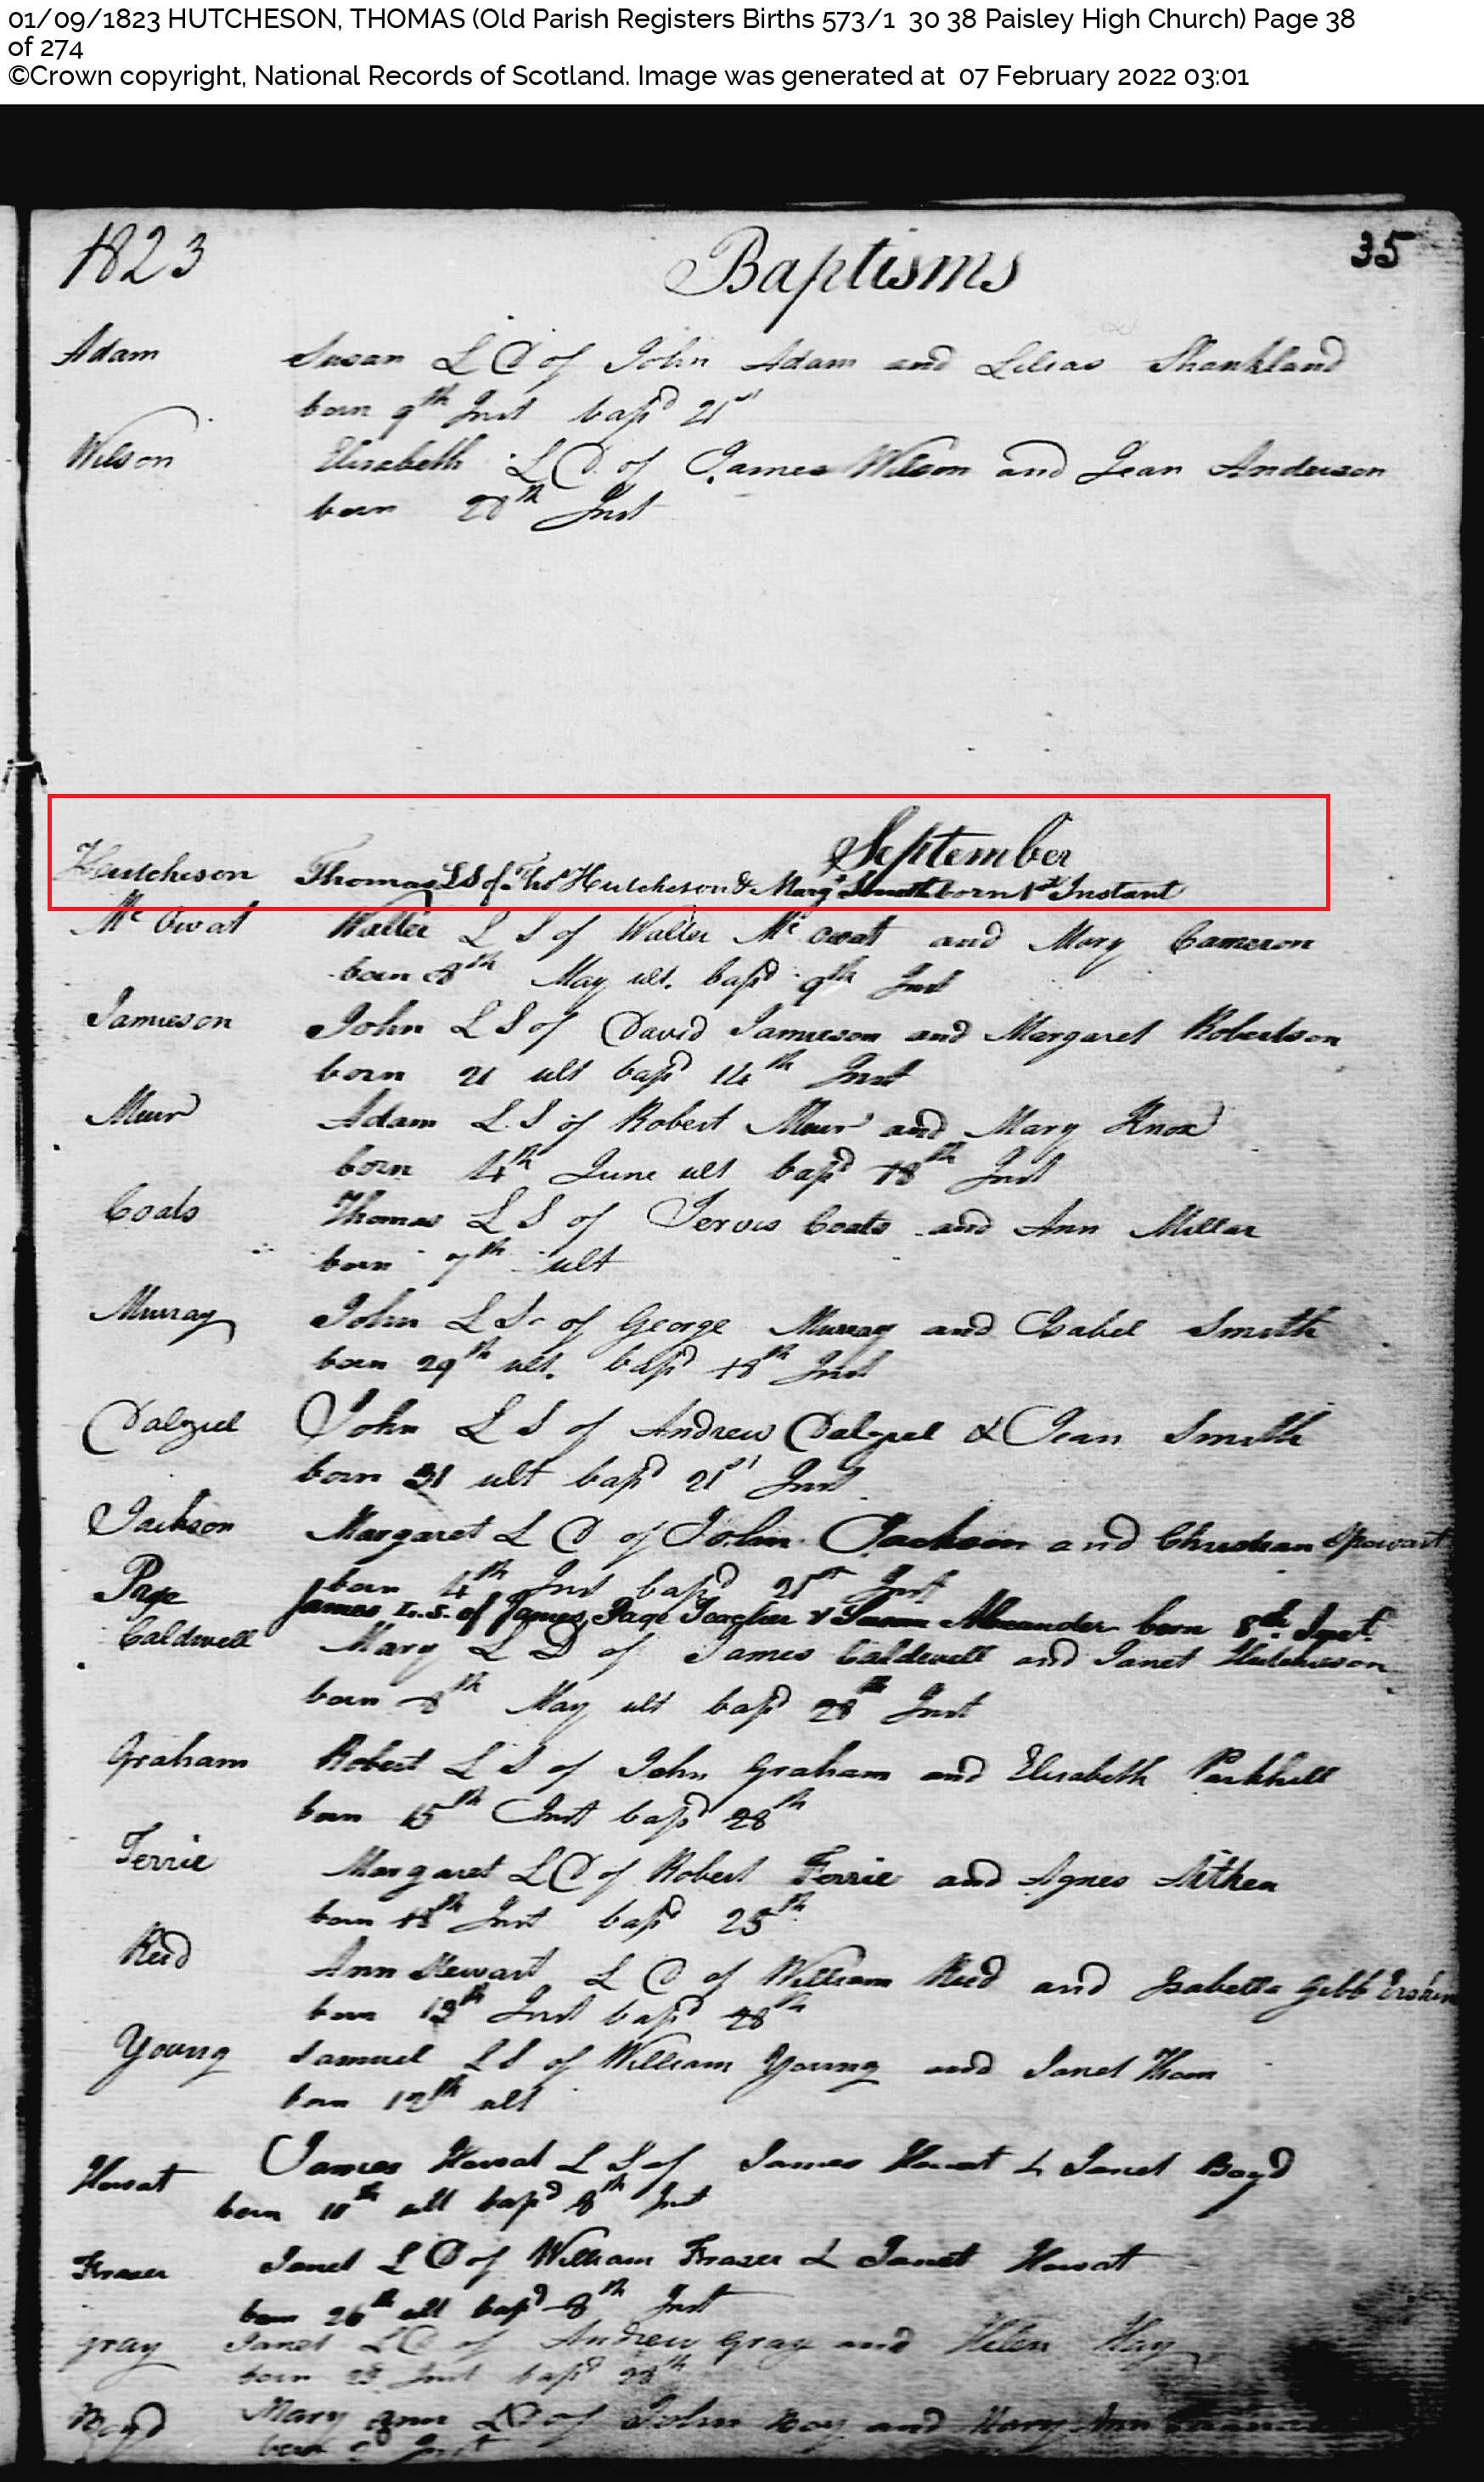 01/09/1823 HUTCHESON, THOMAS (Old Parish Registers Births 573/1 30 38 Paisley High Church) Page 38
of 274
©Crown copyright, National Records of Scotland. Image was generated at 07 February 2022 03:01
1823 Baptisms 35
Adam Susan L D of John Adam and Lilias Shankland
born 9th Inst bapd 21st
Wilson Elisabeth L D of James Wilson and Jean Anderson
born 28th Inst
September
Hutcheson Thomas L S of Thos Hutcheson & Margt Smith born 1st Instant
Mc Owat Walter L S of Walter Mc Owat and Mary Cameron
born 8th May ult. bapd 9th Inst
Jamieson John L S of David Jamieson and Margaret Robertson
born 21 ult bapd 14th Inst
Muir Adam L S of Robert Muir and Mary Knox
born 4th June ult bapd 18th Inst
Coats Thomas L S of Jervis Coats and Ann Millar
born 7th ult
Murray John L S of George Murray and Isabel Smith
born 29th ult. bapd 18th Inst
Dalziel John L S of Andrew Dalziel & Jean Smith
born 31 ult bapd 21st Inst
Jackson Margaret L D of John Jackson and Christian
born 4th Inst bapd 21st Inst
Page James L.S. of James Page Teacher & Susan Alexander born 8th Inst.
Caldwell Mary L D of James Caldwell and Janet Hutcheson
born 8th May ult bapd 28th Inst
Graham Robert L S of John Graham and Elisabeth Parkhill
born 15th Inst bapd 28th
Ferrie Margaret L D of Robert Ferrie and Agnes Aitken
born 18th Inst bapd 25th
Reid Ann Stewart L D of William Reid and Isabella Gibb
born 13th Inst bapd 28th
Young Samuel L S of William Young and Janet Thom
born 12th ult
Howat James Howat L S of James Howat & Janet Boyd
born 10th ult bapd 8th Inst
Frazer Janet L D of William Frazer & Janet Howat
born 26th ult bapd 8th Inst
Gray Janet L D of Andrew Gray and Helen Hay
born Inst bapd 28th
Boyd Mary Ann L D of John Boy and Mary Ann
born Inst